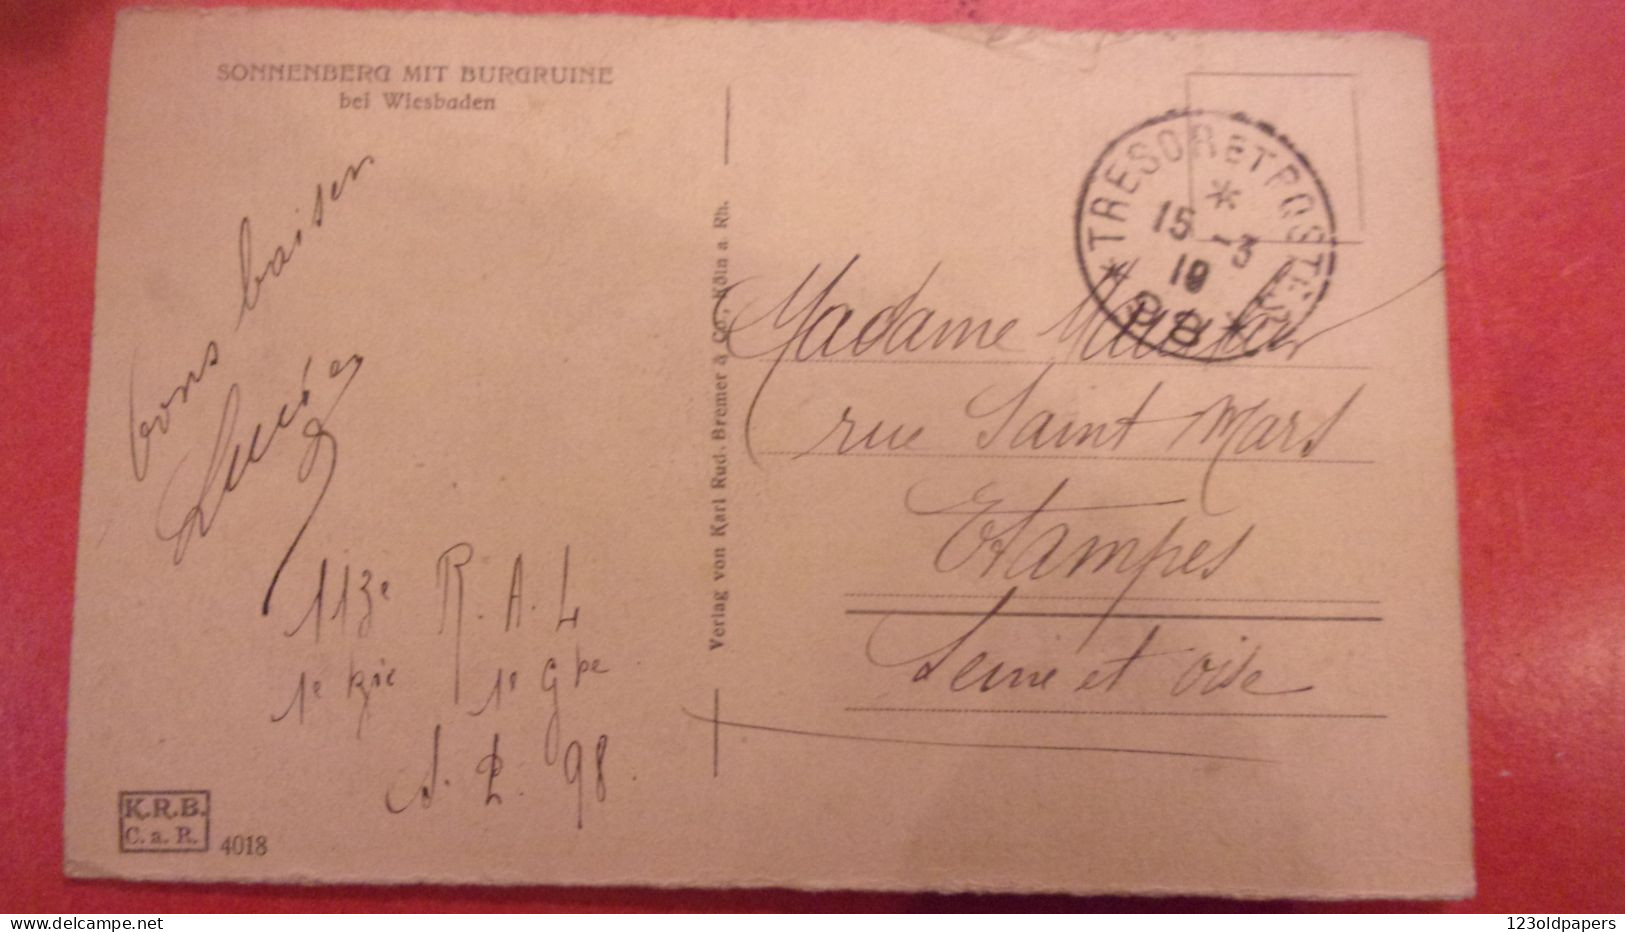 SONNENBERG MIT BURGRUINE
bei Wiesbaden
bons baisers
113e R.A.L
1e Bie 1e Gpe
S.P. 98.
K.R.B.
C. a. R.
4018
Verlag von Karl Rud. Bremer & Co., Köln a. Rh.
* TRESOR ET POSTES *
*
15 - 3
19
98
Madame
rue Saint Mars
Etampes
Seine et oise
123oldpapers